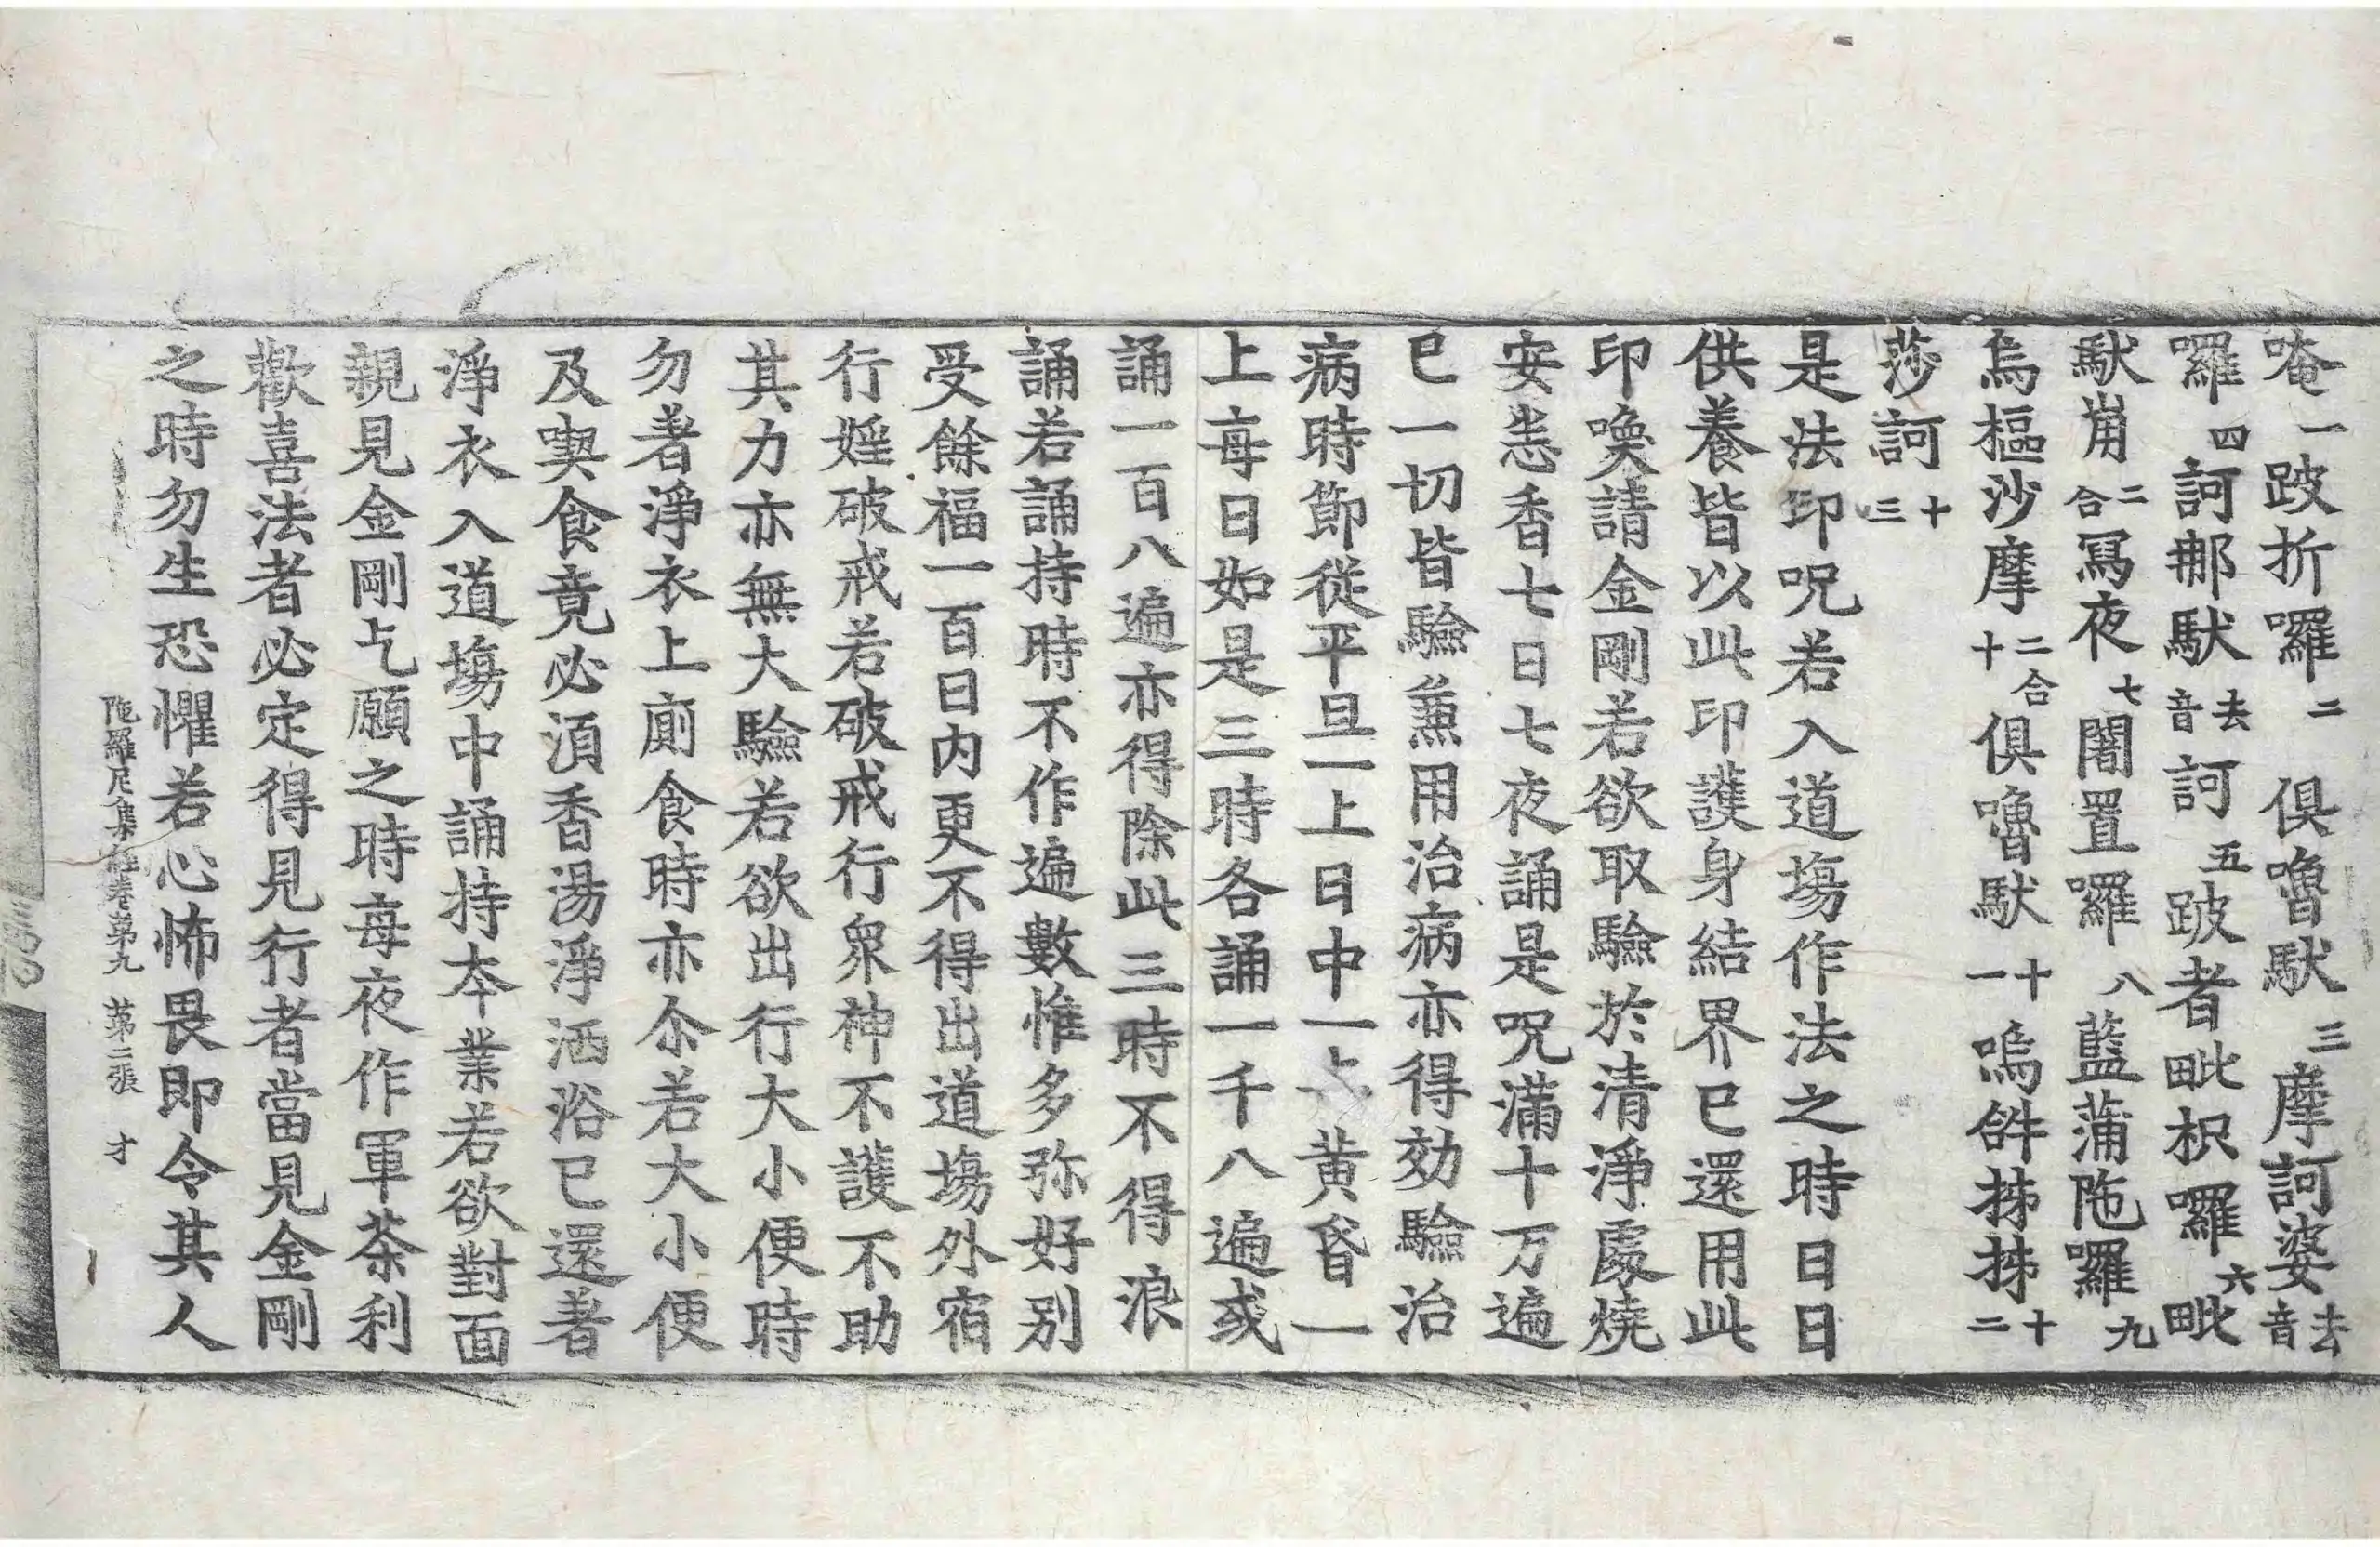 唵一跛折囉二俱嚕馱三摩訶婆去音
囉四訶那馱去音訶五跛者毗枳囉六毗
馱崩二合寫夜七闍置囉八藍蒲陁羅九
烏樞沙摩二合十俱嚕馱十一嗚𤙖㧊㧊十二
莎訶十三
是法印呪若入道塲作法之時日日
供養皆以此印護身結界已還用此
印喚請金剛若欲取驗於清淨處燒
安悉香七日七夜誦是呪滿十万遍
已一切皆驗兼用治病亦得効驗治
病時節從平旦一上日中一上黃昏一
上每日如是三時各誦一千八遍或
誦一百八遍亦得除此三時不得浪
誦若誦持時不作遍數惟多弥好别
受餘福一百日內更不得出道塲外宿
行婬破戒若破戒行衆神不護不助
其力亦無大驗若欲出行大小便時
勿著淨衣上廁食時亦尒若大小便
及喫食竟必湏香湯淨洒浴已還著
淨衣入道塲中誦持本業若欲對面
親見金剛乞願之時每夜作軍茶利
歡喜法者必定得見行者當見金剛
之時勿生恐懼若心怖畏即令其人
陁羅尼集經卷第九 第二張 才